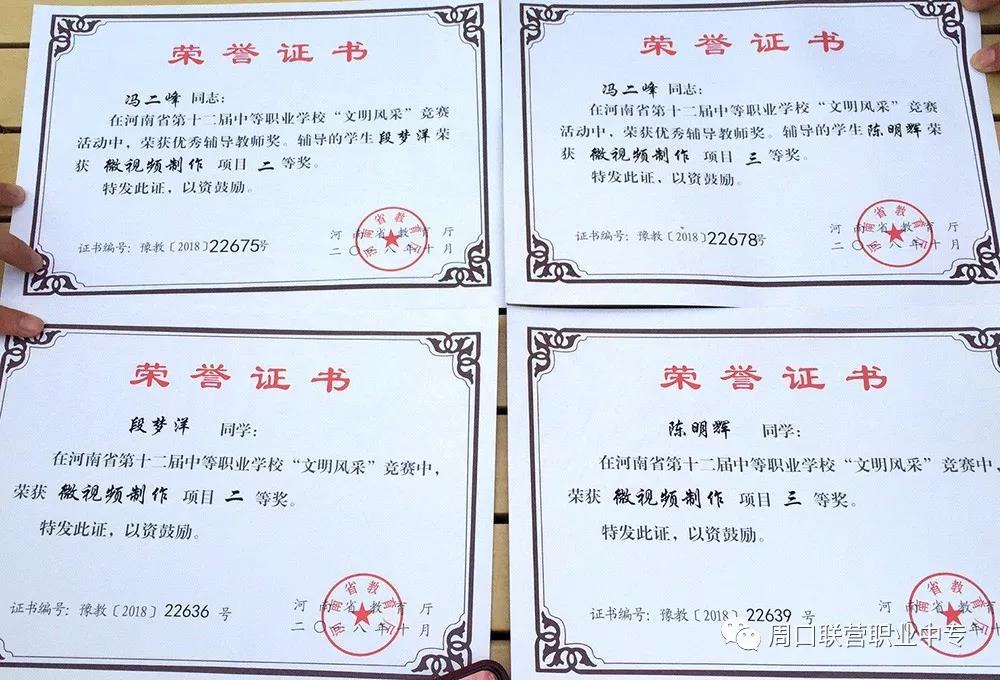 荣誉证书
冯二峰 同志：
在河南省第十二届中等职业学校“文明风采”竞赛
活动中，荣获优秀辅导教师奖。辅导的学生段梦洋荣
获 微视频制作 项目 二 等奖。
特发此证，以资鼓励。
证书编号：豫教〔2018〕22675号
河南省教育厅
二〇一八年十月
荣誉证书
冯二峰 同志：
在河南省第十二届中等职业学校“文明风采”竞赛
活动中，荣获优秀辅导教师奖。辅导的学生陈明辉荣
获 微视频制作 项目 三 等奖。
特发此证，以资鼓励。
证书编号：豫教〔2018〕22678号
河南省教育厅
二〇一八年十月
荣誉证书
段梦洋 同学：
在河南省第十二届中等职业学校“文明风采”竞赛中，
荣获 微视频制作 项目 二 等奖。
特发此证，以资鼓励。
证书编号：豫教〔2018〕22636 号
河南省教育厅
二〇一八年十月
荣誉证书
陈明辉 同学：
在河南省第十二届中等职业学校“文明风采”竞赛中，
荣获 微视频制作 项目 三 等奖。
特发此证，以资鼓励。
证书编号：豫教〔2018〕22639 号
河南省教育
周口联营职业中专